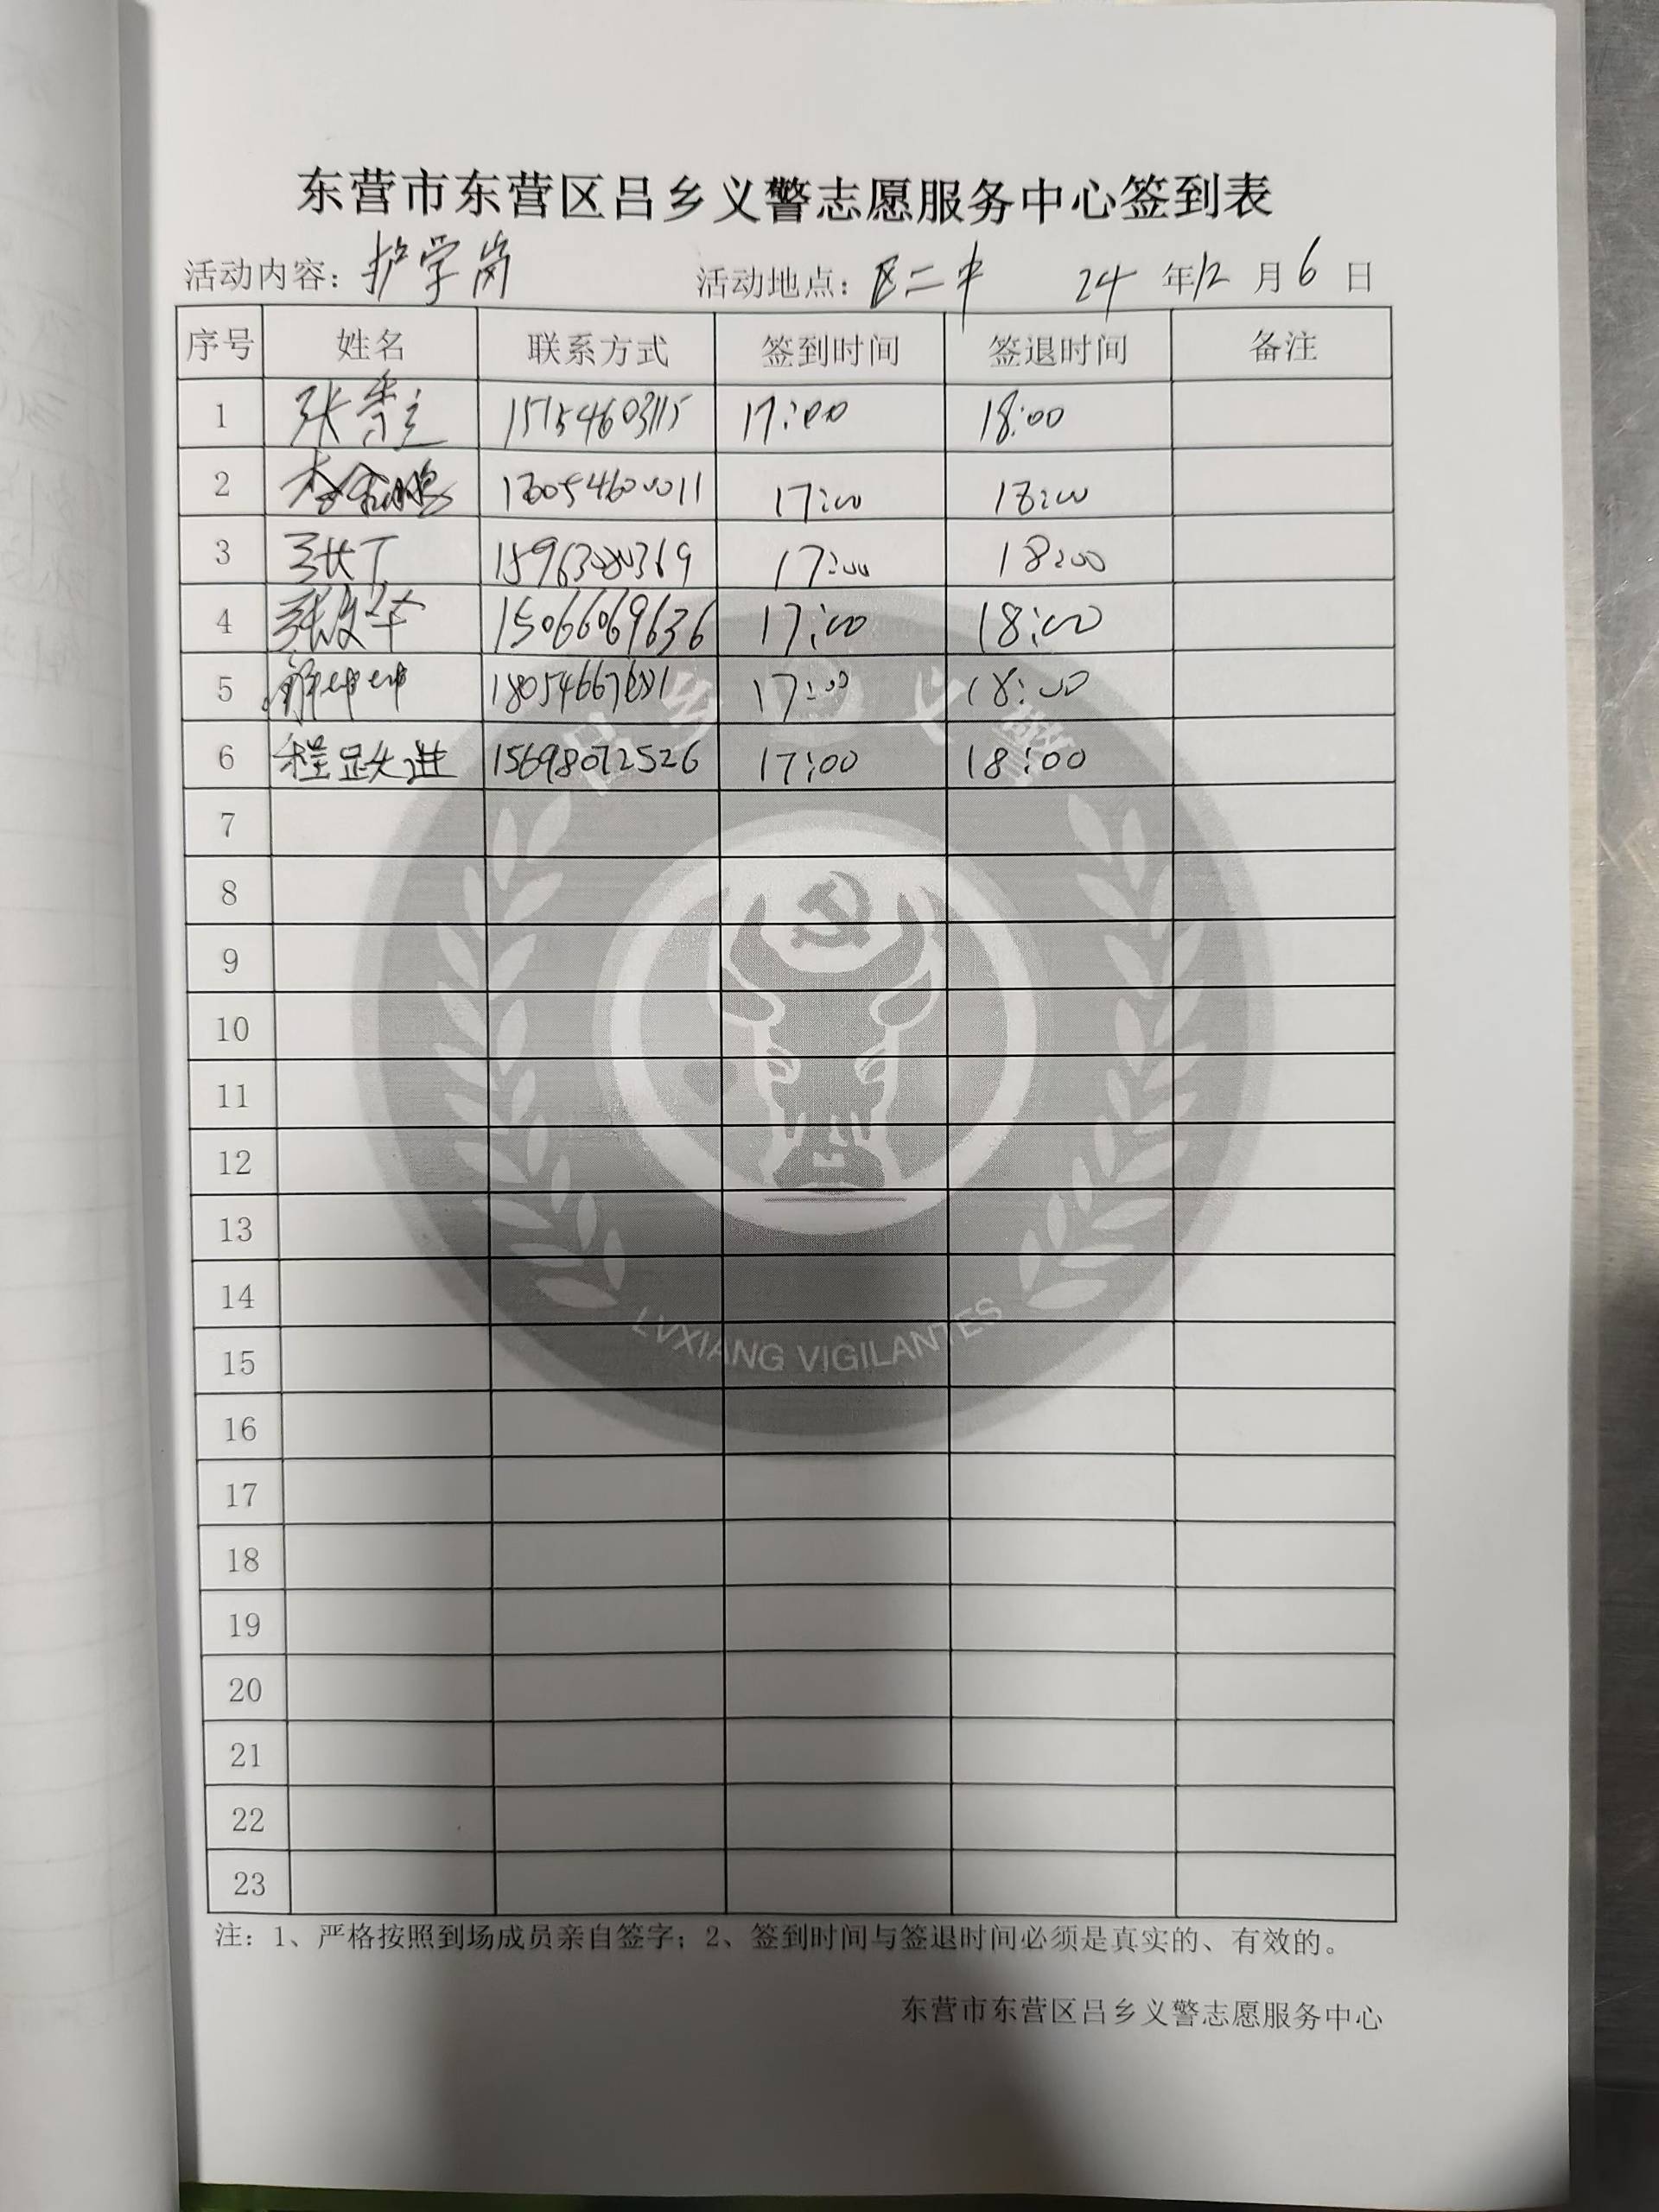 东营市东营区吕乡义警志愿服务中心签到表
活动内容：护学岗 活动地点：区二中 24 年 12 月 6 日
序号 姓名 联系方式 签到时间 签退时间 备注
1 张秀立 15154603115 17:00 18:00
2 17:00 18:00
3 17:00 18:00
4 15066069636 17:00 18:00
5 17:00 18:00
6 程跃进 15698072526 17:00 18:00
7
8
9
10
11
12
13
14
15
16
17
18
19
20
21
22
23
吕乡义警
LVXIANG VIGILANTES
注：1、严格按照到场成员亲自签字；2、签到时间与签退时间必须是真实的、有效的。
东营市东营区吕乡义警志愿服务中心